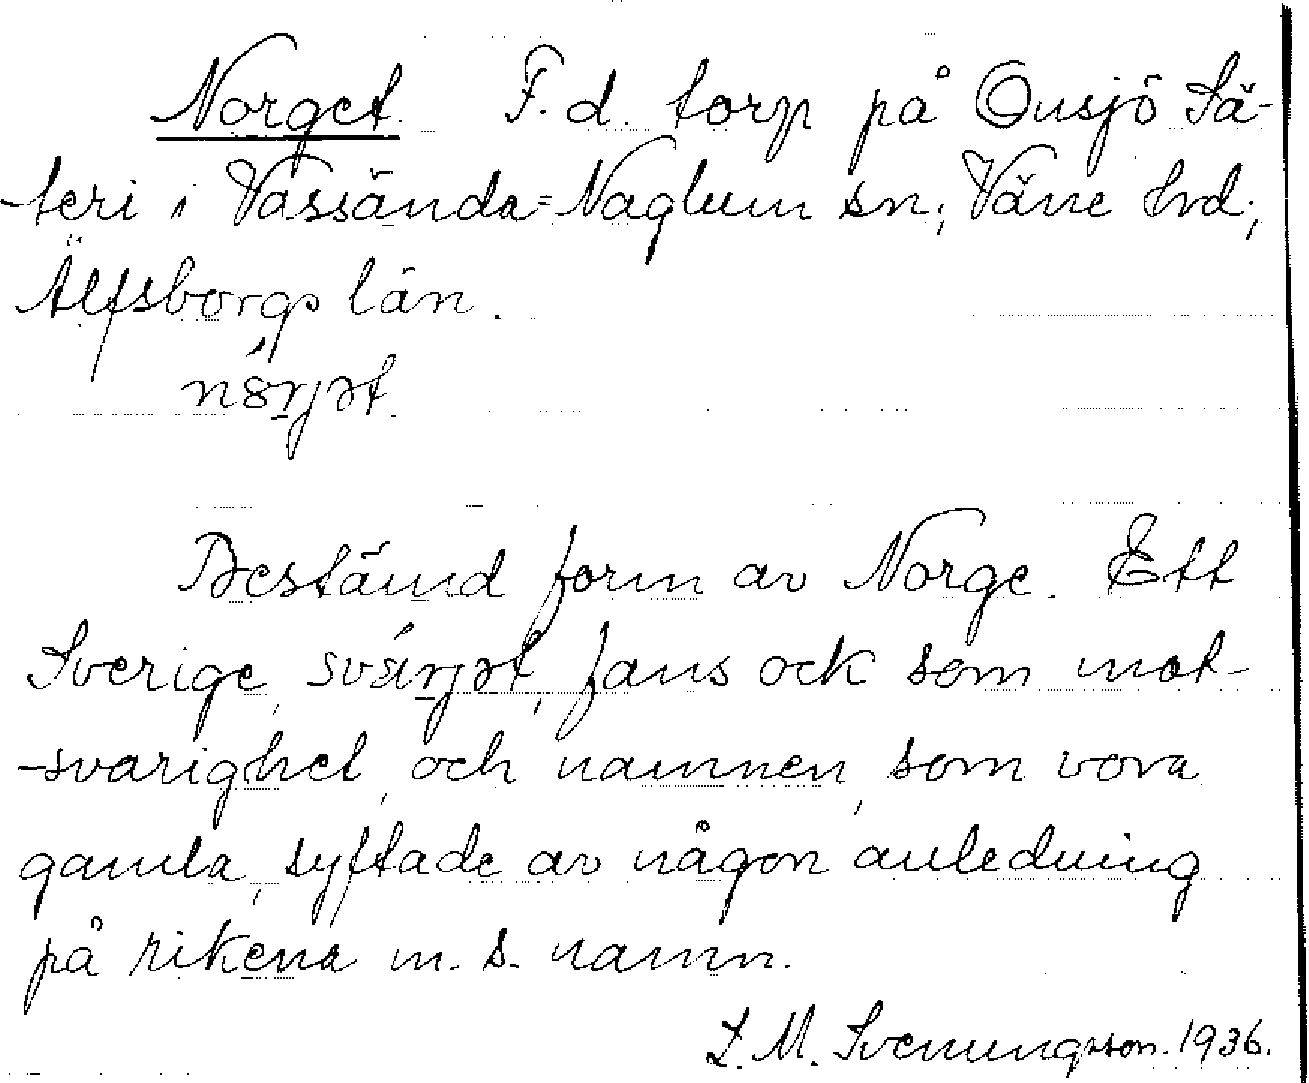 Norget. F. d. torp på Onsjö Sä-
teri i Vassända=Naglum sn; Väne hrd;
Älfsborgs län.
Bestämd form av Norge. Ett
Sverige, fans ock som mot-
-svarighet, och namnen, som vora
gamla, syftade av någon anledning
på rikena m. s. namn.
L. M. Svenungsson. 1936.